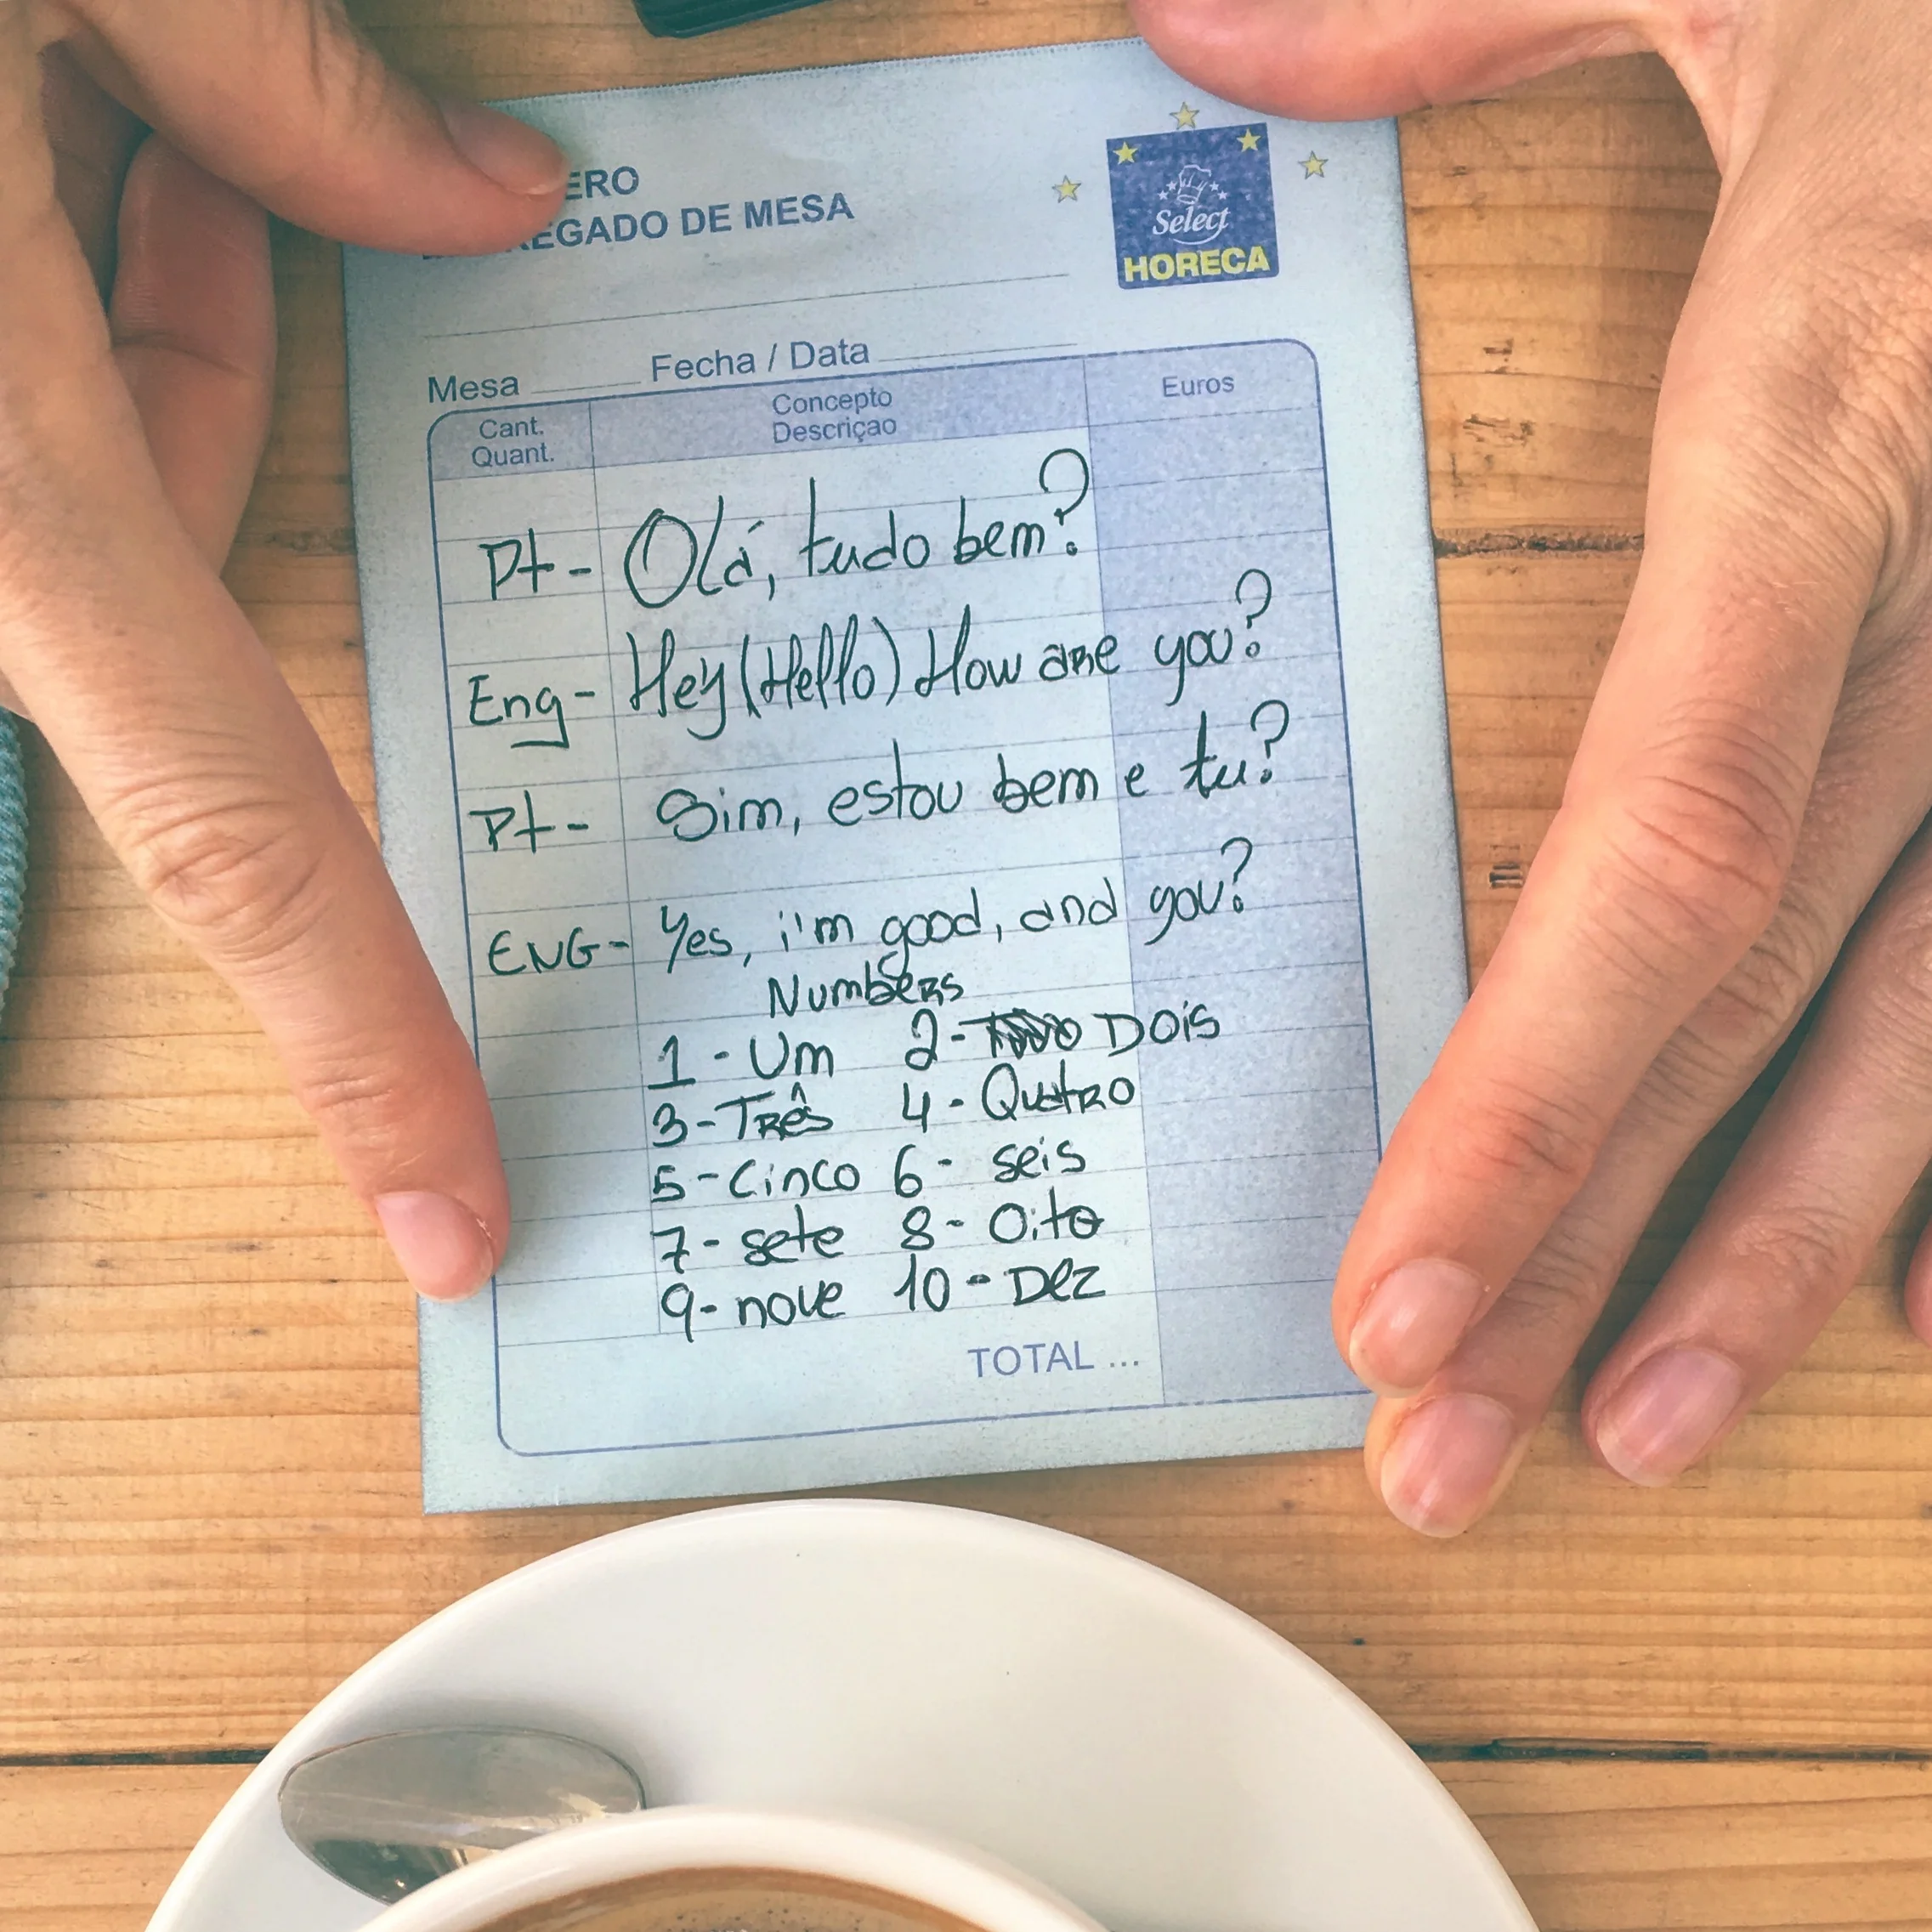 ERO
EGADO DE MESA
Select
HORECA
Mesa Fecha / Data
Cant.
Quant.
Concepto
Descriçao
Euros
Pt- Olá, tudo bem?
Eng- Hey (Hello) How are you?
Pt- Sim, estou bem e tu?
ENG- Yes, i'm good, and you?
Numbers
1 - Um 2- Dois
3-Três 4- Quatro
5-Cinco 6- seis
7- sete 8- Oito
9- nove 10 - Dez
TOTAL ...